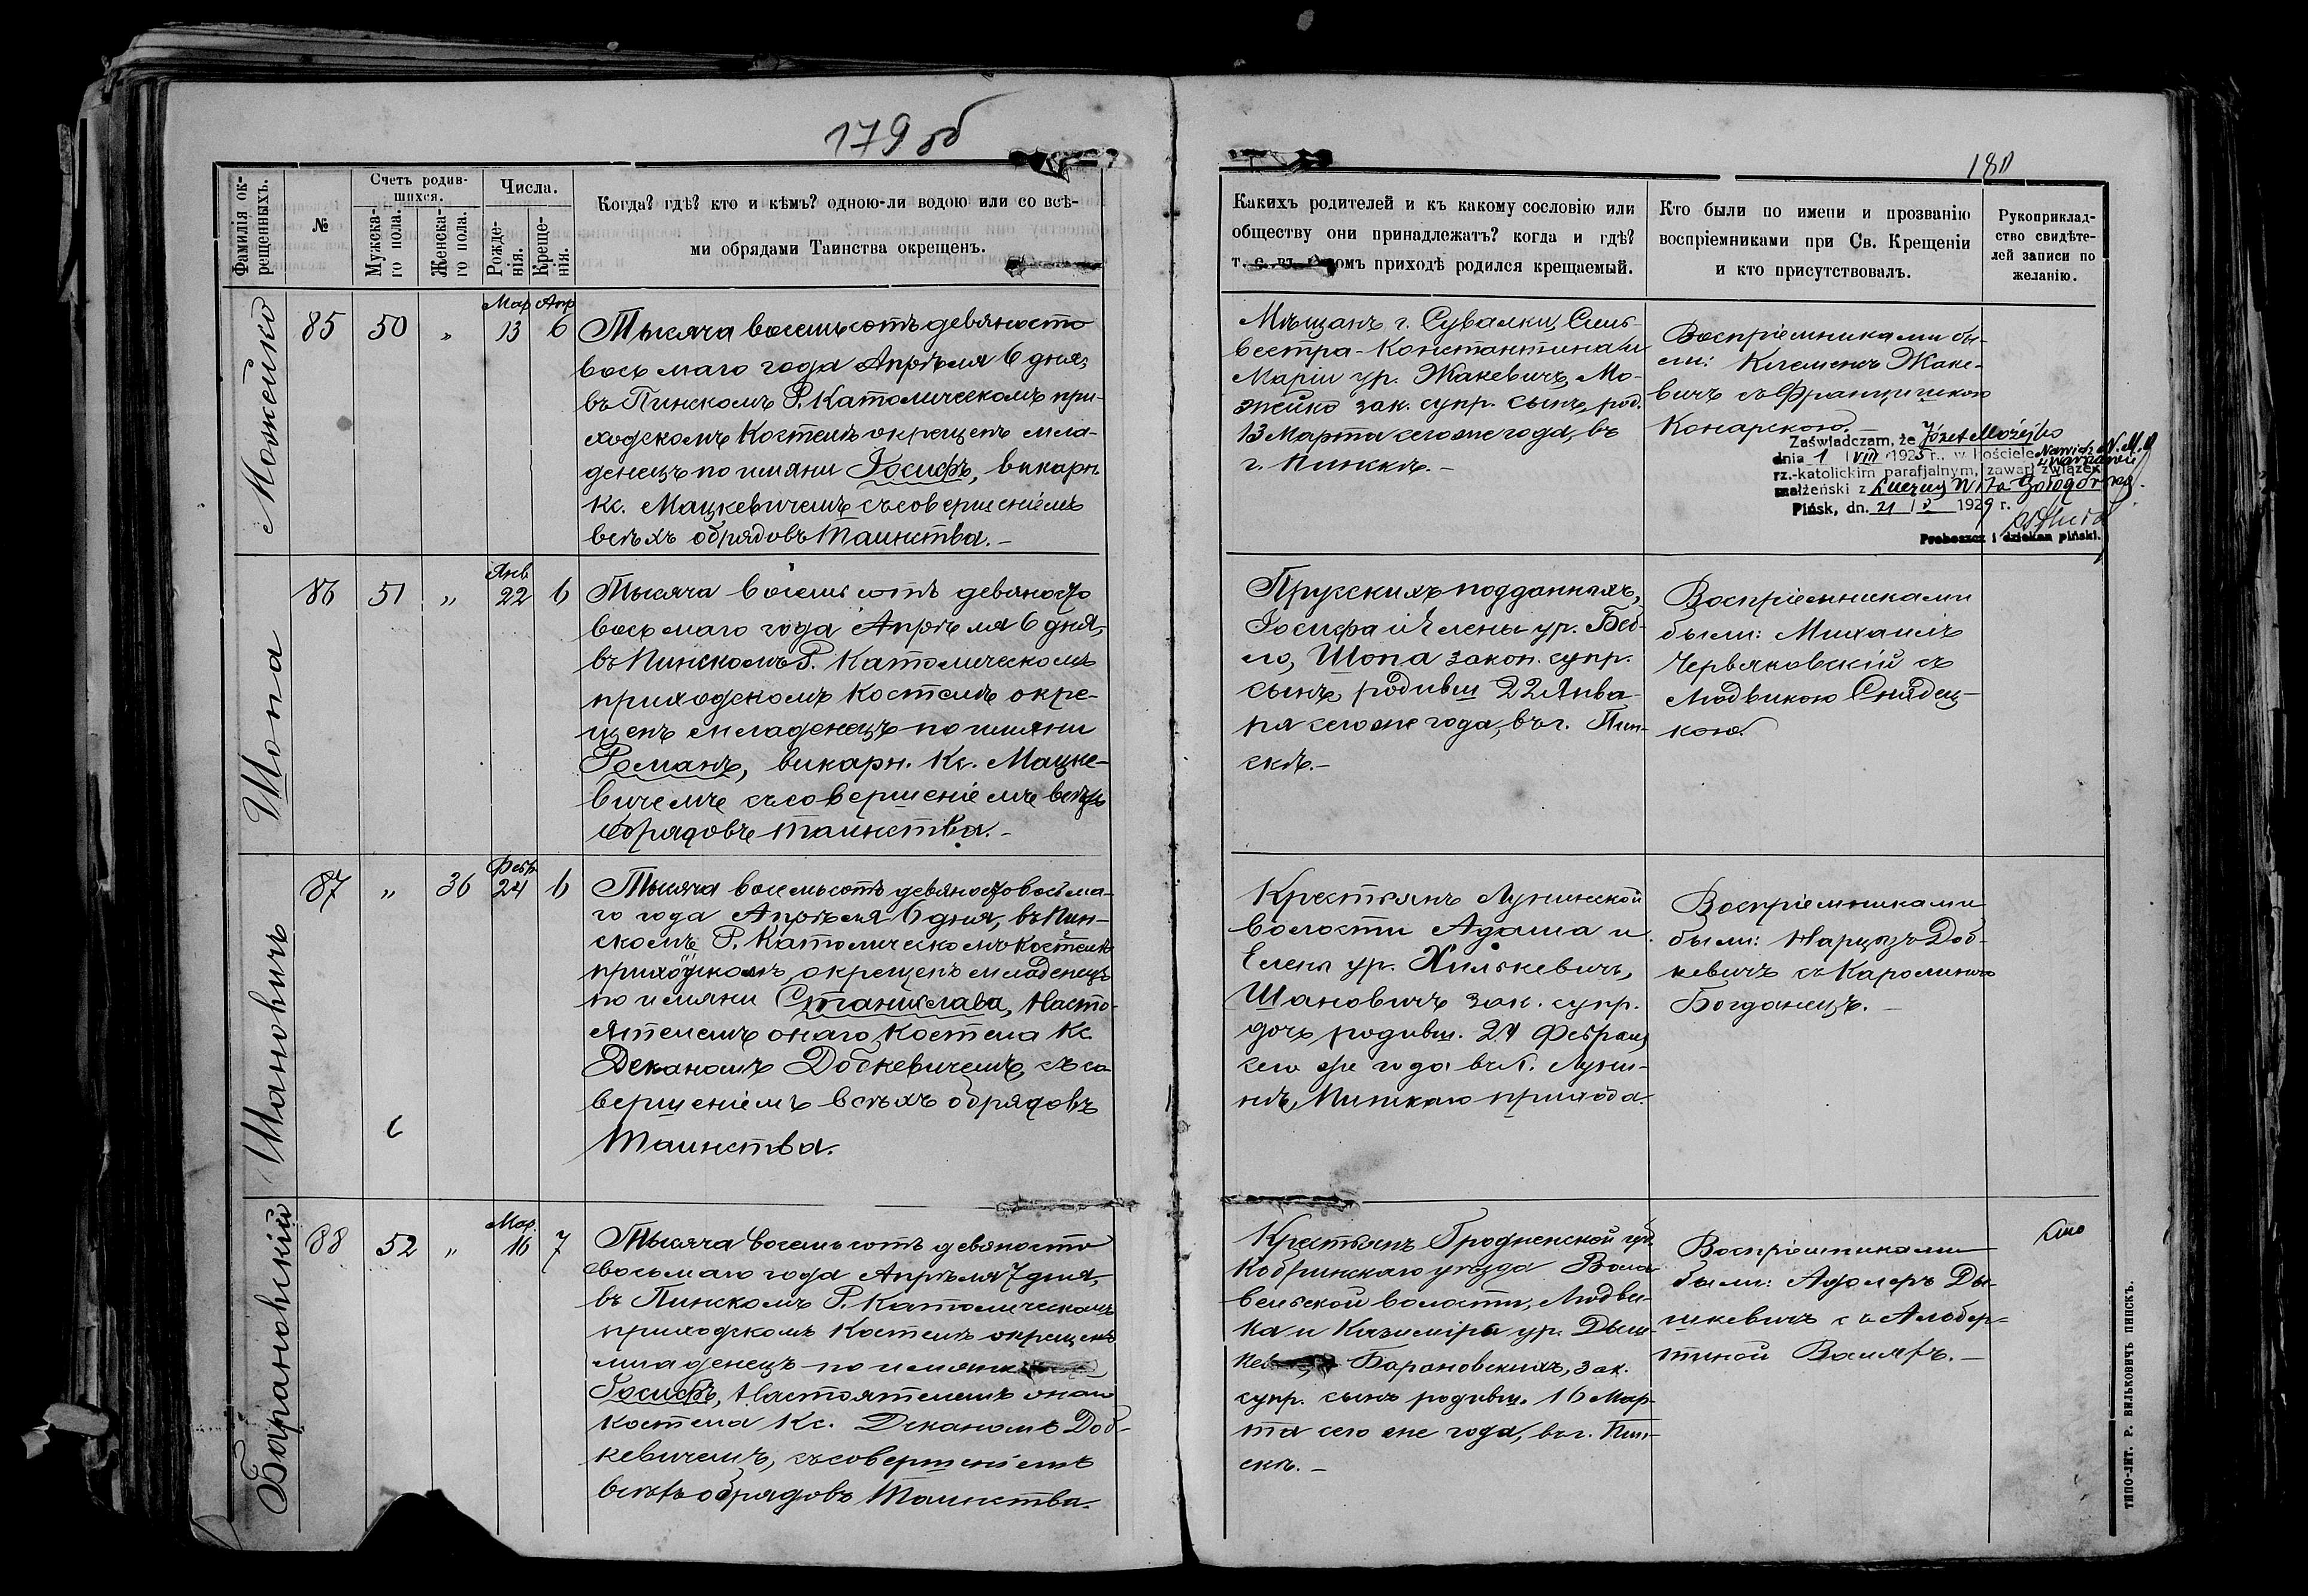 179 об
180
Фамилія ок-
рещенныхъ.
№
Счетъ родив-
шихся.
Мужска-
го пола.
Женска-
го пола.
Числа.
Рожде-
нія.
Креще-
нія.
Когда? гдѣ? кто и кѣмъ? одною-ли водою или со всѣ-
ми обрядами Таинства окрещенъ.
Какихъ родителей и къ какому сословію или
обществу они принадлежатъ? когда и гдѣ?
т. е. въ комъ приходѣ родился крещаемый.
Кто были по имени и прозванію
воспріемниками при Св. Крещеніи
и кто присутствовалъ.
Рукоприклад-
ство свидѣте-
лей записи по
желанію.
Можейко
85 50 „ Мар 13 Апр 6
Тысяча восемьсотъ девяносто
восьмаго года Апрѣля 6 дня,
въ Пинскомъ Р. Католическомъ при-
ходскомъ Костелѣ окрещенъ мла-
денецъ по имяни Іосифъ, викарн.
Кс. Мацкевичемъ съ совершеніемъ
всѣхъ обрядовъ Таинства. –
Мѣщанъ г. Сувалки, Силь-
вестра-Константина и
Маріи ур. Жакевичъ, Мо-
жейко зак. супр. сынъ, род.
13 Марта сего же года, въ
г. Пинскѣ. –
Воспріемниками бы-
ли: Клеменсъ Жаке-
вичъ съ Францишкою
Конарскою. –
Zaświadczam, że Józef Możejko
dnia 1 VIII 1925 r., w kościele Nawiedz. N. M. P.
w Warszawie
rz.-katolickim parafjalnym, zawarł związek
małżeński z
Pińsk, dn. 21 V 1929 r.
Proboszcz i dziekan piński.
Шопа
86 51 „ Янв 22 6
Тысяча восемьсотъ девяносто
восьмаго года Апрѣля 6 дня,
въ Пинскомъ Р. Католическомъ
приходскомъ Костелѣ окре-
щенъ младенецъ по имяни
Романъ, викарн. Кс. Мацке-
вичемъ съ совершеніемъ всѣхъ
обрядовъ таинства. –
Прусскихъ подданныхъ,
Іосифа и Елены ур. Беб-
ло, Шопа закон. супр.
сынъ, родивш 22 Янва-
ря сего же года, въ г. Пин-
скѣ. –
Воспріемниками
были: Михаилъ
Червяковскій съ
Людвикою Снядец-
кою.
Шановичъ
87 „ 36 Февр 24 6
Тысяча восемьсотъ девяностовосьма-
го года Апрѣля 6 дня, въ Пин-
скомъ Р. Католическомъ Костелѣ
приходскомъ, окрещенъ младенецъ
по имяни Станислава, Насто-
ятелемъ онаго Костела Кс.
Деканомъ Добкевичемъ, съ со
вершеніемъ всѣхъ обрядовъ
Таинства.
Крестьянъ Лунинской
волости Адама и
Елены ур. Хилькевичъ,
Шановичъ зак. супр.
дочь, родивш. 24 Февраля
сего же года въ Луни-
нѣ, Пинскаго прихода.
Воспріемниками
были: Нарцизъ Доб-
кевичъ съ Каролиною
Богданецъ. –
Барановскій
88 52 „ Мар. 16 7
Тысяча восемьсотъ девяносто
восьмаго года Апрѣля 7 дня,
въ Пинскомъ Р. Католическомъ
приходскомъ Костелѣ окрещенъ
младенецъ по имяни
Іосифъ, Настоятелемъ онаго
Костела Кс. Деканомъ Доб-
кевичемъ, съ совершеніемъ
всѣхъ обрядовъ Таинства.
Крестьянъ Гродненской губ.
Кобринскаго уѣзда
волости, Людви-
ка и Казиміры ур. Дыш-
кев Барановскихъ, зак.
супр. сынъ родивш. 16 Мар-
та сего же года, въ г. Пин-
скѣ. –
Воспріемниками
были: Адольфъ Ды-
шкевичъ съ Альбер-
тиной
ТИПО-ЛИТ. Р. ВИЛЬКОВИЧЪ ПИНСКЪ.